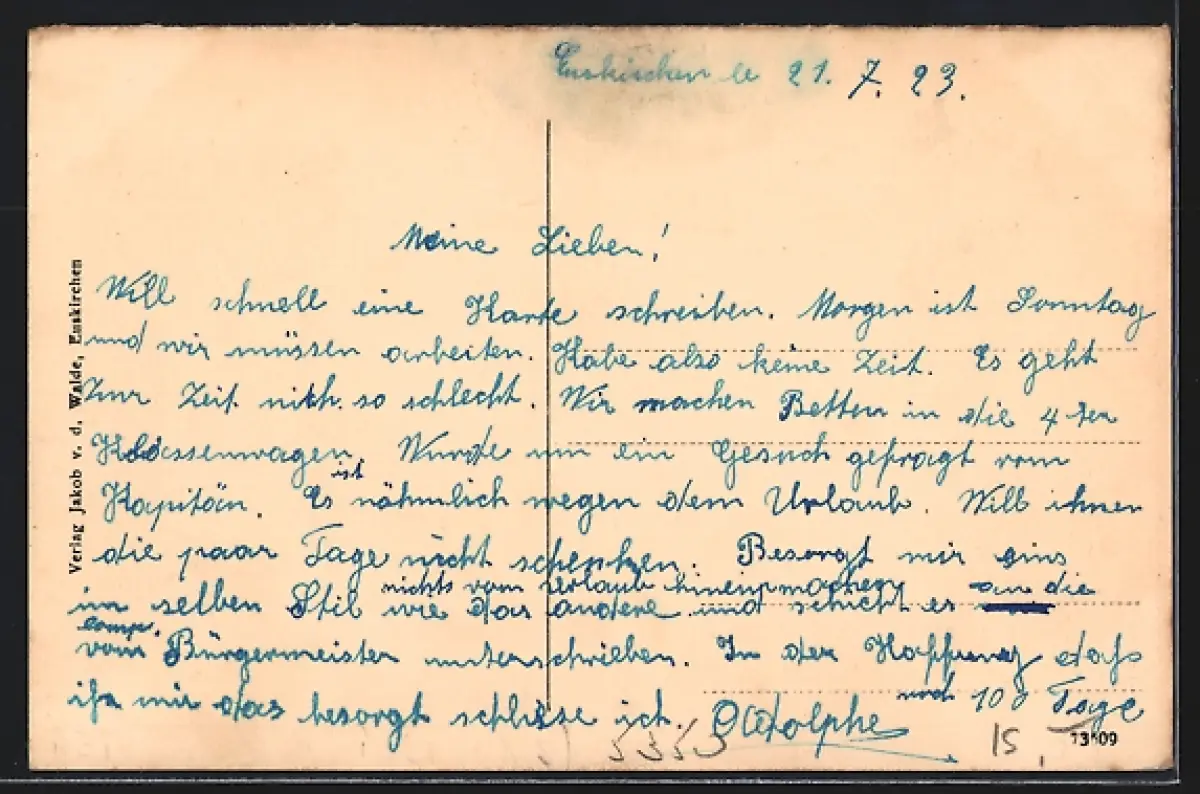 Euskirchen le 21. 7. 23.
Meine Lieben!
Will schnell eine Karte schreiben. Morgen ist Sonntag
und wir müssen arbeiten. Habe also keine Zeit. Es geht
Zur Zeit nich so schlecht. Wir machen Betten in die 4 ter
Klassenwagen. Wurde um ein Gesuch gefragt vom
Kapitän. Es ist nähmlich wegen dem Urlaub. Will ihnen
die paar Tage nicht schenken. Besorgt mir eins
nichts vom Urlaub hinein machen
im selben Stil wie das andere und schickt es an die
comp.
vom Bürgermeister unterschrieben. In der Hoffnung daß
ihr mir das besorgt schliese ich. Adolphe noch 100 Tage
Verlag Jakob v. d. Walde, Euskirchen
5353
15
13109